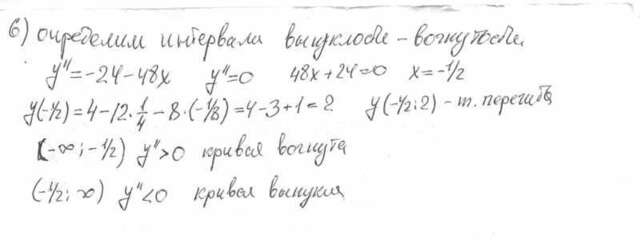 6) определим интервали выпуклости - вогнутости.
y''=-24-48x y''=0 48x+24=0 x=-1/2
y(-1/2)=4-12·1/4-8·(-1/8)=4-3+1=2 y(-1/2;2) - т. перегиба
(-∞;-1/2) y''>0 кривая вогнута
(-1/2;∞) y''<0 кривая выпукля